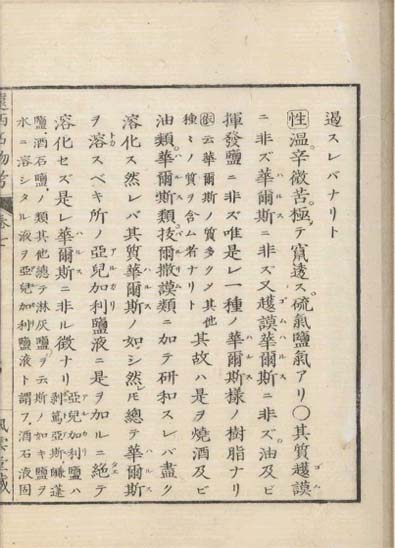 過スレバナリト
性温辛微苦極テ竄透ス硫氣鹽氣アリ〇其質越謨
ニ非ズ華爾斯ニ非ズ又越謨華爾斯ニ非ズ油及ビ
揮發鹽ニ非ズ唯是レ一種ノ華爾斯樣ノ樹脂ナリ
云華爾斯ノ質多クメ其他
種々ノ質ヲ含ム者ナリト
其故ハ是ヲ燒酒及ビ
油類華爾斯類抜爾撒謨類ニ加テ研和スレバ盡ク
溶化ス然レバ其質華爾斯ノ如シ然レ𪜈總テ華爾斯
ヲ溶スベキ所ノ亞兒加利鹽液ニ是ヲ加ルニ絶テ
溶化セズ是レ華爾斯ニ非ル徴ナリ
亞兒加利鹽ハ
剥篤亞斯蓬
鹽酒石鹽ノ類其他總テ淋灰鹽ヲ云斯ノ如キ鹽ヲ
水ニ溶シタル液ヲ亞兒加利鹽液ト謂フ酒石液固
西名物考 卷七
風雲堂藏